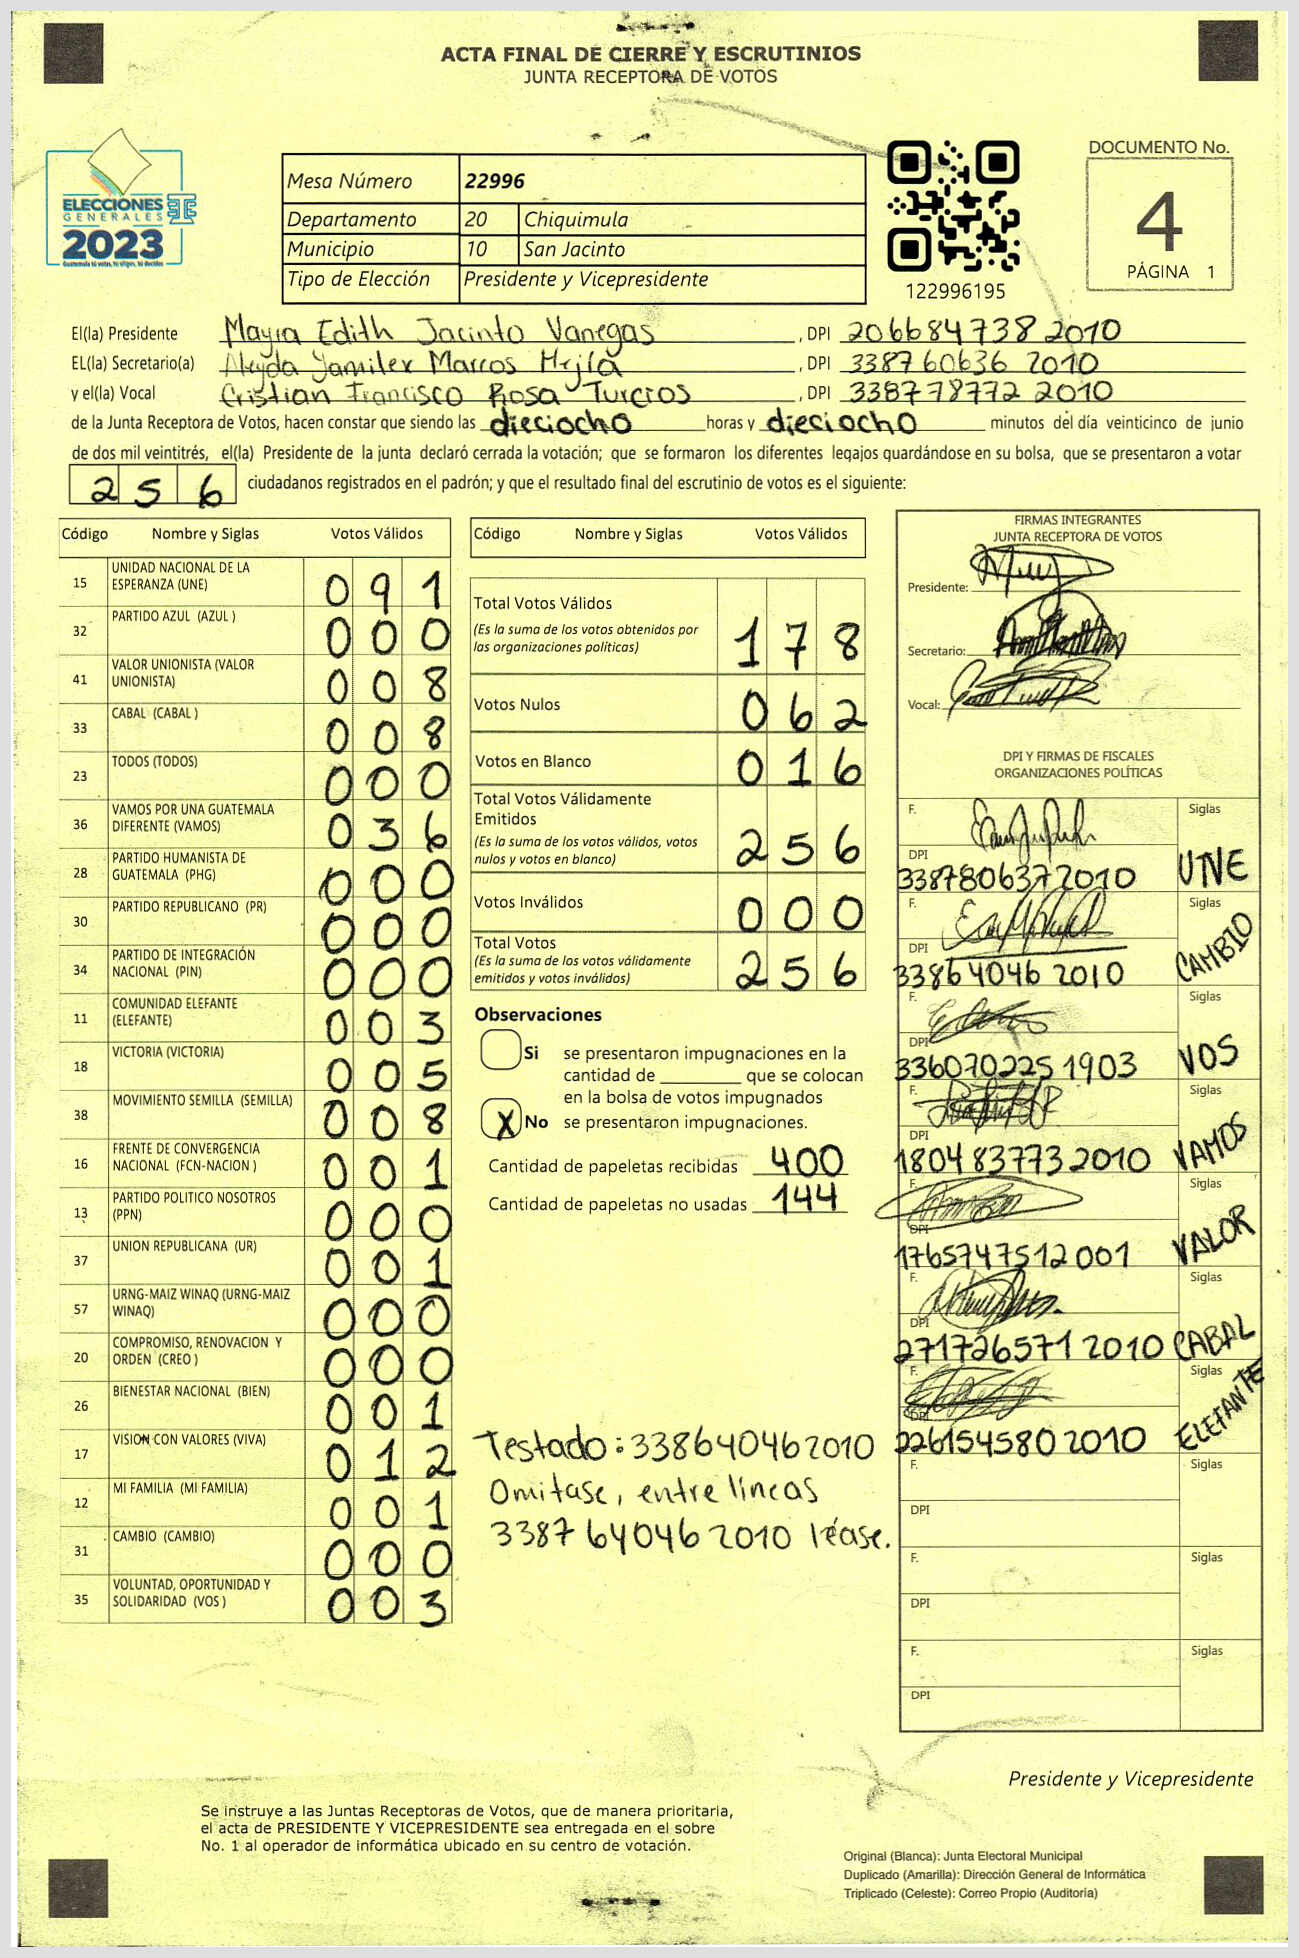 ACTA FINAL DE CIERRE Y ESCRUTINIOS
JUNTA RECEPTORA DE VOTOS
ELECCIONES
GENERALES
2023
Guatemala tú votas, tú eliges, tú decides
Mesa Número 22996
Departamento 20 Chiquimula
Municipio 10 San Jacinto
Tipo de Elección Presidente y Vicepresidente
122996195
DOCUMENTO No.
4
PÁGINA 1
El(la) Presidente Mayra Edith Jacinto Vanegas, DPI 206684738 2010
EL(la) Secretario(a) Aleyda Yamilex Marcos Mejía, DPI 338760636 2010
y el(la) Vocal Cristian Francisco Rosa Turcios, DPI 338778772 2010
de la Junta Receptora de Votos, hacen constar que siendo las dieciocho horas y dieciocho minutos del día veinticinco de junio
de dos mil veintitrés, el(la) Presidente de la junta declaró cerrada la votación; que se formaron los diferentes legajos quardándose en su bolsa, que se presentaron a votar
256 ciudadanos registrados en el padrón; y que el resultado final del escrutinio de votos es el siguiente:
Código Nombre y Siglas Votos Válidos
15 UNIDAD NACIONAL DE LA
ESPERANZA (UNE) 091
32 PARTIDO AZUL (AZUL ) 000
41 VALOR UNIONISTA (VALOR
UNIONISTA) 008
33 CABAL (CABAL ) 008
23 TODOS (TODOS) 000
36 VAMOS POR UNA GUATEMALA
DIFERENTE (VAMOS) 036
28 PARTIDO HUMANISTA DE
GUATEMALA (PHG) 000
30 PARTIDO REPUBLICANO (PR) 000
34 PARTIDO DE INTEGRACIÓN
NACIONAL (PIN) 000
11 COMUNIDAD ELEFANTE
(ELEFANTE) 003
18 VICTORIA (VICTORIA) 005
38 MOVIMIENTO SEMILLA (SEMILLA) 008
16 FRENTE DE CONVERGENCIA
NACIONAL (FCN-NACION ) 001
13 PARTIDO POLITICO NOSOTROS
(PPN) 000
37 UNION REPUBLICANA (UR) 001
57 URNG-MAIZ WINAQ (URNG-MAIZ
WINAQ) 000
20 COMPROMISO, RENOVACION Y
ORDEN (CREO ) 000
26 BIENESTAR NACIONAL (BIEN) 001
17 VISION CON VALORES (VIVA) 012
12 MI FAMILIA (MI FAMILIA) 001
31 CAMBIO (CAMBIO) 000
35 VOLUNTAD, OPORTUNIDAD Y
SOLIDARIDAD (VOS ) 003
Código Nombre y Siglas Votos Válidos
Total Votos Válidos
(Es la suma de los votos obtenidos por
las organizaciones políticas) 178
Votos Nulos 062
Votos en Blanco 016
Total Votos Válidamente
Emitidos
(Es la suma de los votos válidos, votos
nulos y votos en blanco) 256
Votos Inválidos 000
Total Votos
(Es la suma de los votos válidamente
emitidos y votos inválidos) 256
Observaciones
Si se presentaron impugnaciones en la
cantidad de ________ que se colocan
en la bolsa de votos impugnados
X No se presentaron impugnaciones.
Cantidad de papeletas recibidas 400
Cantidad de papeletas no usadas 144
Testado: 338640462010
Omitase, entre líneas
3387 64046 2010 léase.
FIRMAS INTEGRANTES
JUNTA RECEPTORA DE VOTOS
Presidente:
Secretario:
Vocal:
DPI Y FIRMAS DE FISCALES
ORGANIZACIONES POLÍTICAS
F. Siglas
DPI
338780637 2010 UNE
F. Siglas
DPI
33864046 2010 CAMBIO
F. Siglas
DPI
336070225 1903 VOS
F. Siglas
DPI
180483773 2010 VAMOS
F. Siglas
DPI
1765747512001 VALOR
F. Siglas
DPI
271726571 2010 CABAL
F. Siglas
DPI
226154580 2010 ELEFANTE
F. Siglas
DPI
F. Siglas
DPI
F. Siglas
DPI
Presidente y Vicepresidente
Se instruye a las Juntas Receptoras de Votos, que de manera prioritaria,
el acta de PRESIDENTE Y VICEPRESIDENTE sea entregada en el sobre
No. 1 al operador de informática ubicado en su centro de votación.
Original (Blanca): Junta Electoral Municipal
Duplicado (Amarilla): Dirección General de Informática
Triplicado (Celeste): Correo Propio (Auditoría)